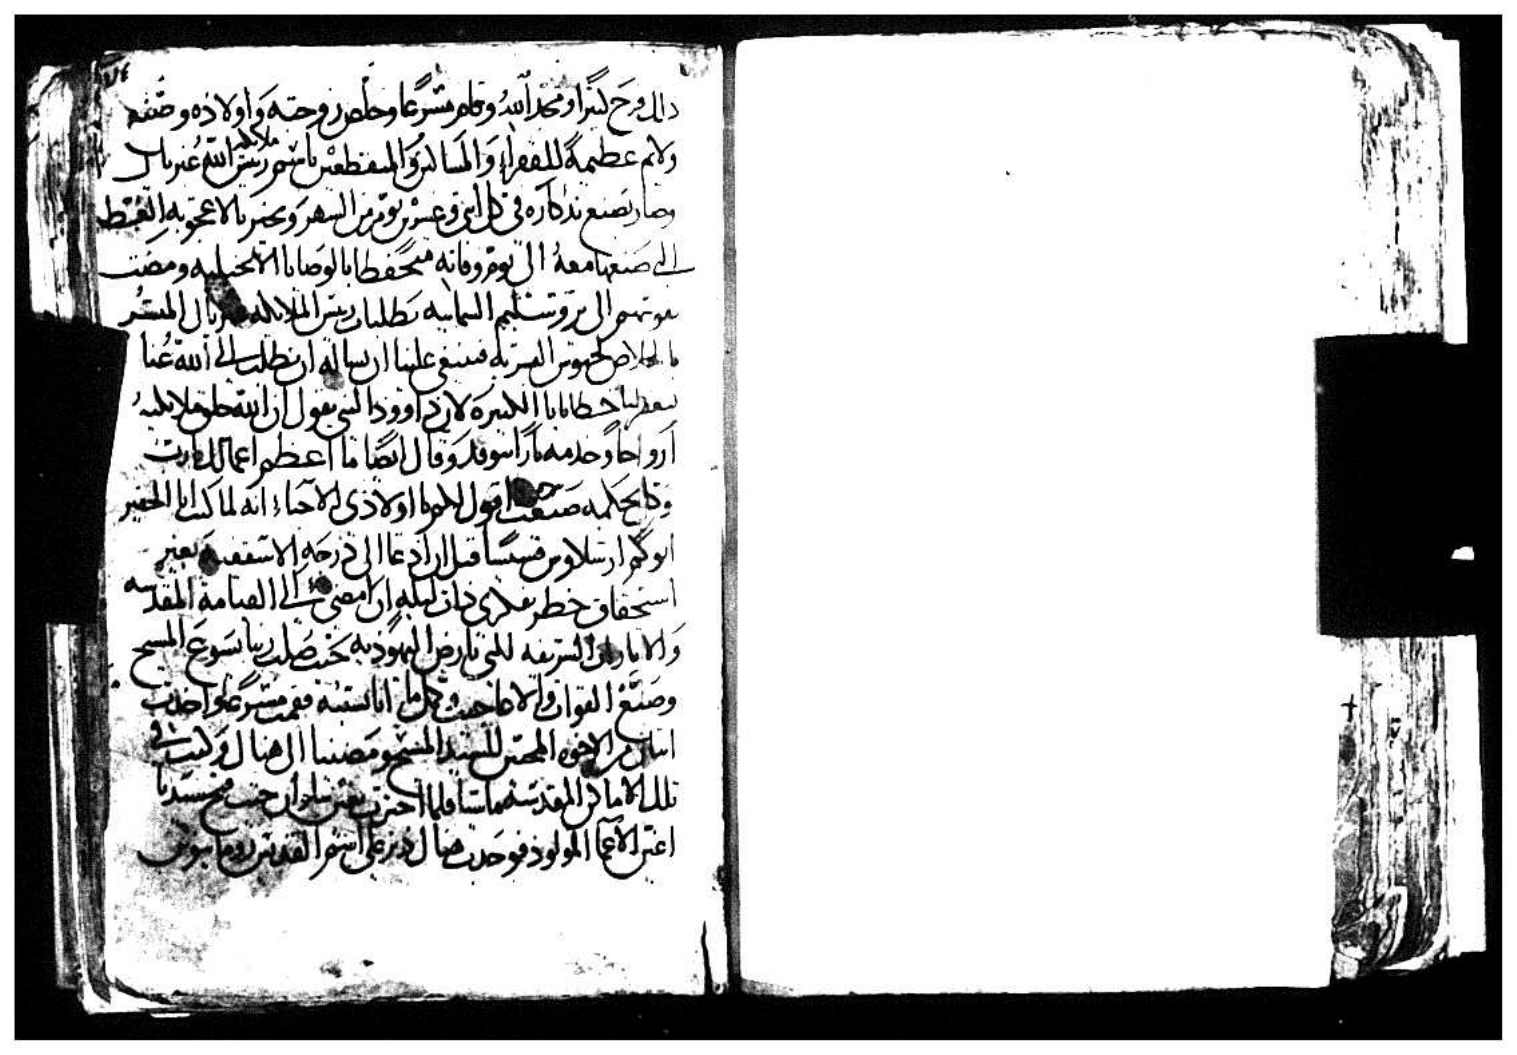 ذلك فرح كثيرا ومجد الله وقام مسرعا وخلص زوجته واولاده وصنع
ولايم عظيمة للفقراء والمساكين والمنقطعين باسم رييس ملايكة الله غبريال
وصار يصنع تذكاره في كل اثنى وعشرين يوم من الشهر ويخبر بالاعجوبة
التي صنعها معه الى يوم وفاته متحفظا بالوصايا الانجيلية ومضت
الى السمايية بطلبات رييس الملايكة غبريال المبشر
بالخلاص لجنس البشرية فينبغي علينا ان نساله ان يطلب الى الله عنا
ليغفر لنا خطايانا الكثيرة لان داوود النبي يقول ان الله خلق ملايكته
ارواحا وخدمه نارا تتوقد وقال ايضا ما اعظم اعمالك يارب
وكل بحكمة صنعت اقول لكم يا اولادي الاحباء انه لما كنت انا الحقير
ابوكم ارشلاوس قسيسا قبل ان ادعا الى درجة الاسقفية بغير
استحقاق خطر بفكري ذات ليلة ان امضي الى القيامة المقدسة
والاثارات الشريفة التي بارض اليهودية حيث صلب ربنا يسوع المسيح
وصنع القوات والاعاجيب فقمت مسرعا واخذت
اثنان من الاخوه المحبين للسيد المسيح ومضينا الى هناك وكنت في
تلك الاماكن المقدسة ماشيا فلما اجتزت حيث فتح سيدنا
اعين الاعما المولود فوجدت هناك دير على اسم القديس رومانوس